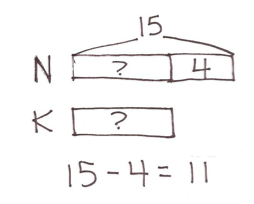 15
N ? 4
K ?
15 - 4 = 11